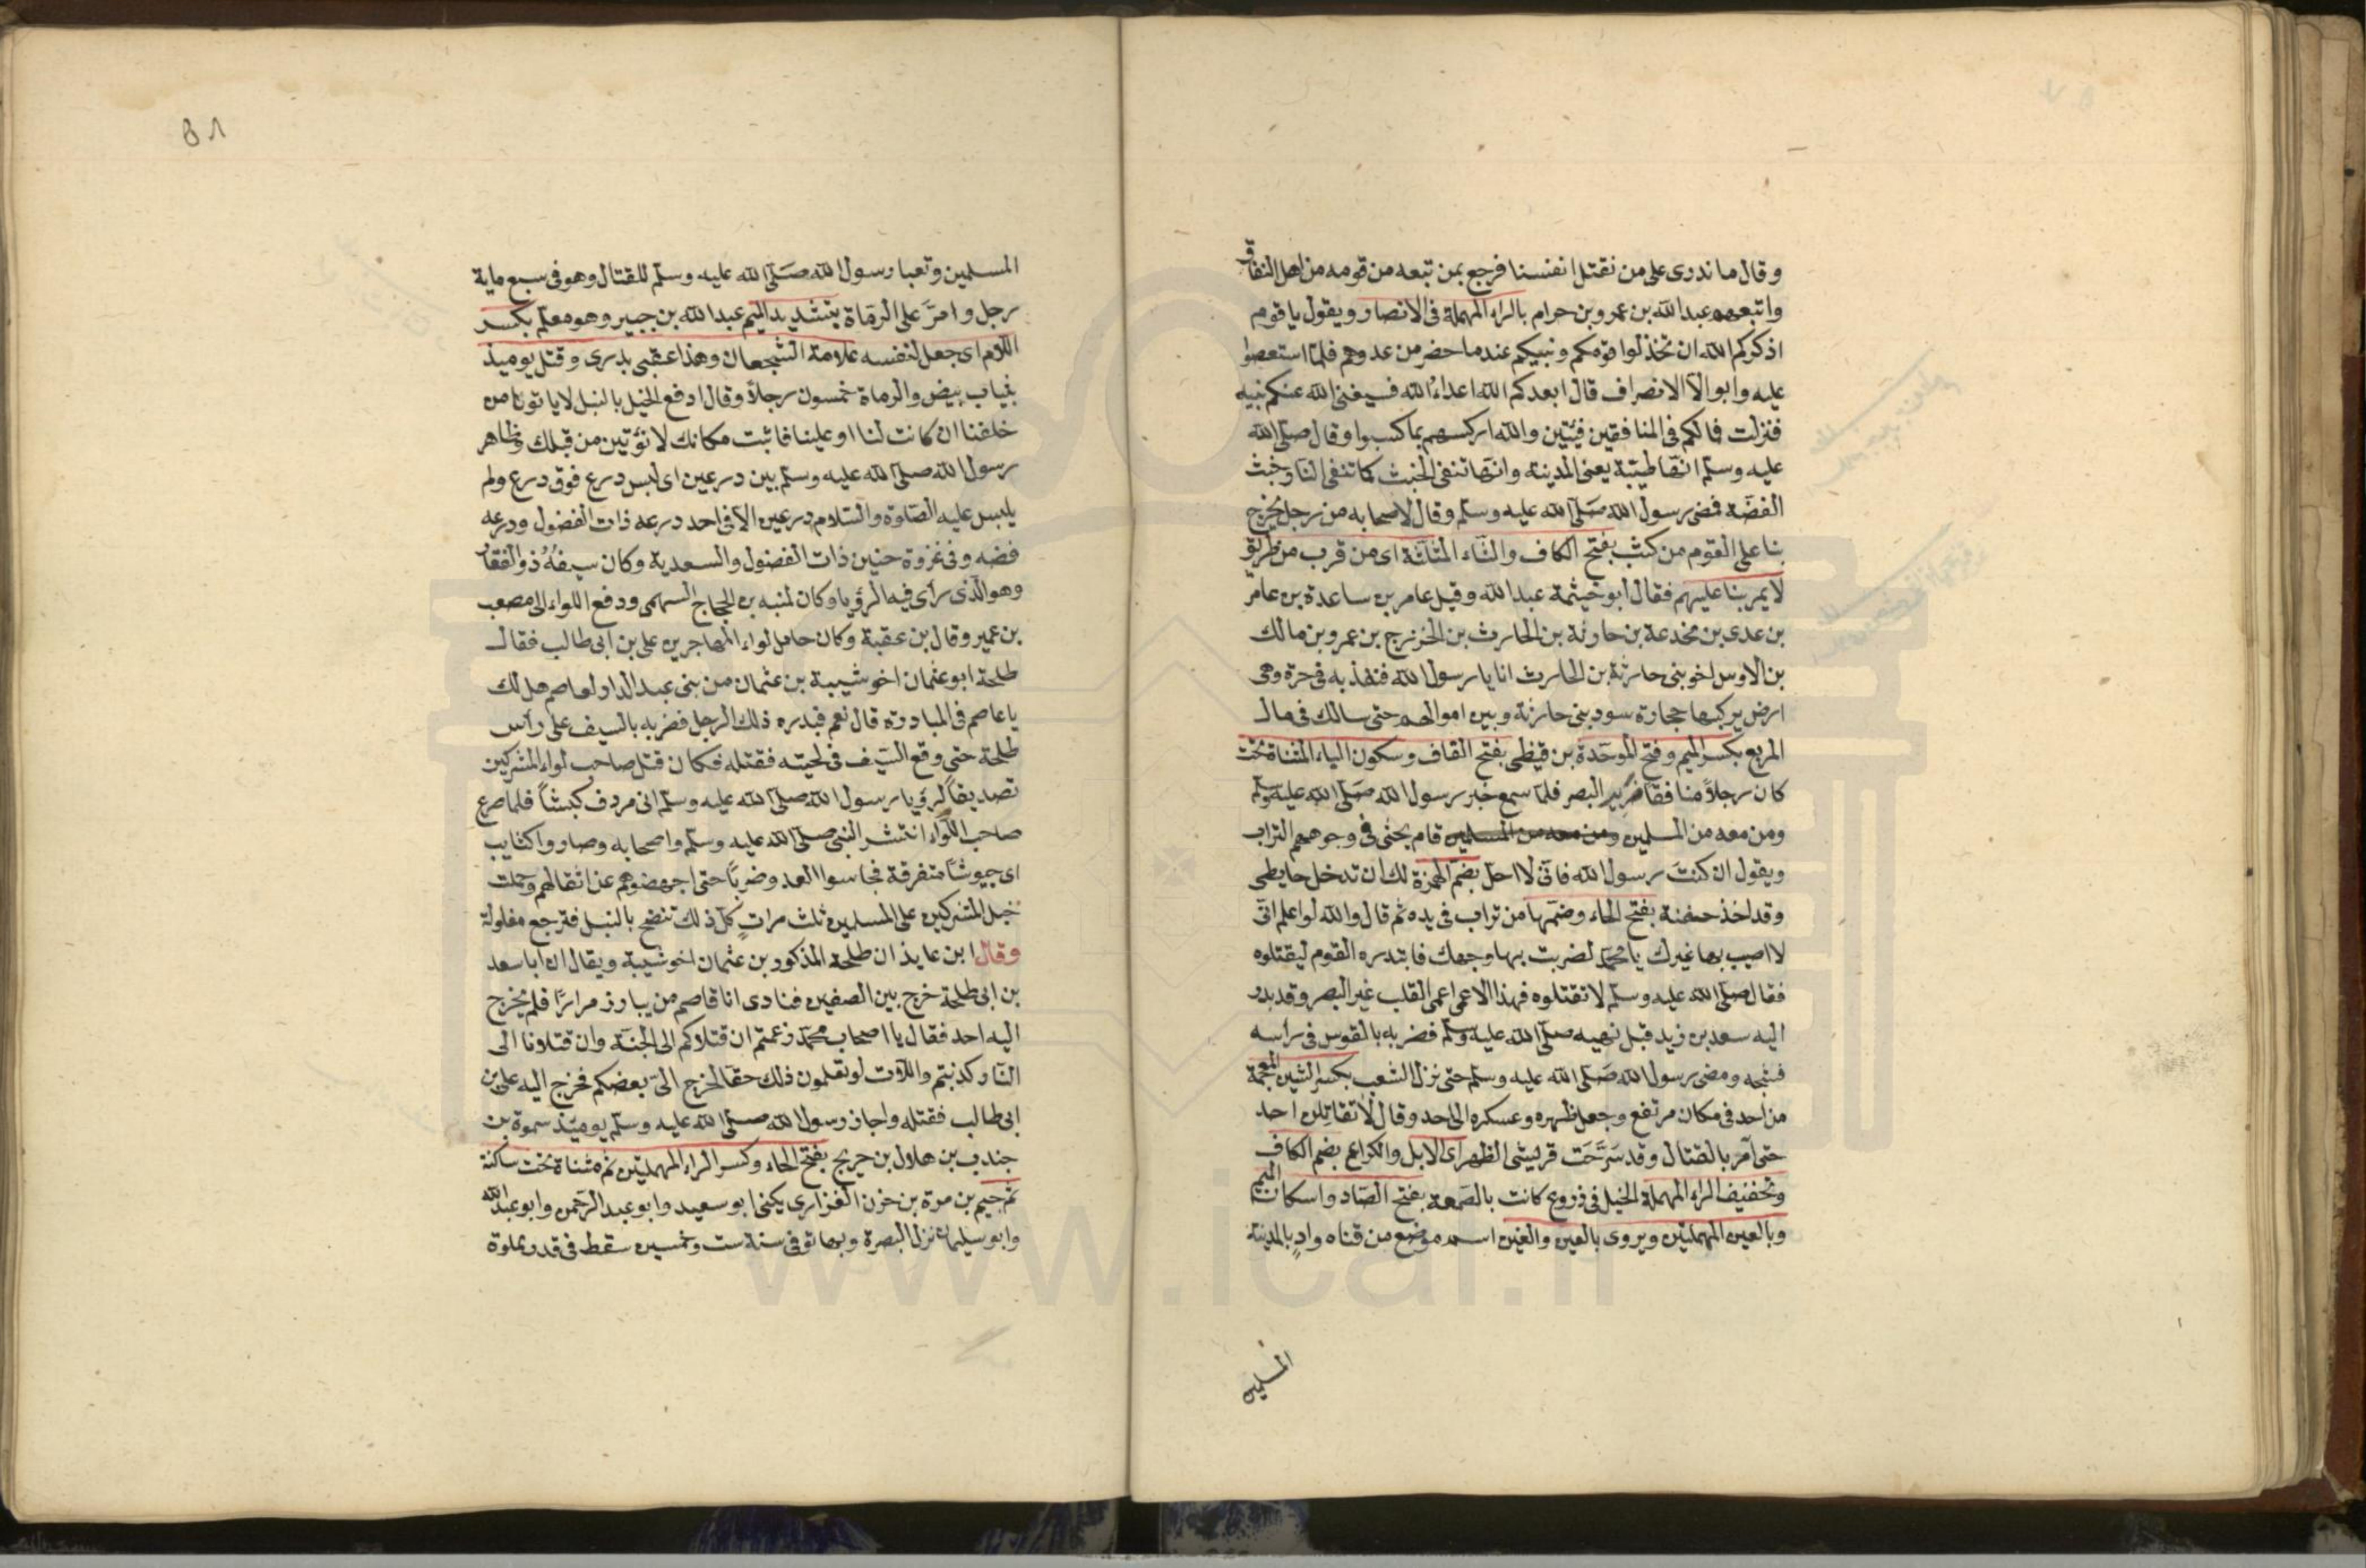 وقال ما ندرى على من نقتل انفسنا فرجع بمن تبعه من قومه من اهل النفاق
واتبعهم عبد الله بن عمرو بن حرام بالراء المهملة فى الانصار ويقول يا قوم
اذكركم الله ان تخذلوا قومكم ونبيكم عند ما حضر من عدوهم فلما استعصوا
عليه وابوا الا الانصراف قال ابعدكم الله اعداء الله فسيغنى الله عنكم نبيه
فنزلت فما لكم فى المنافقين فئتين والله اركسهم بما كسبوا وقال صلى الله
عليه وسلم انها طيبة يعنى المدينة وانها تنفى الخبث كما تنفى النار خبث
الفضة فمضى رسول الله صلى الله عليه وسلم وقال لاصحابه من رجل يخرج
بنا على القوم من كثب بفتح الكاف والثاء المثلثة اى من قرب من طريق
لا يمر بنا عليهم فقال ابو خيثمة عبد الله وقيل عامر بن ساعدة بن عامر
بن عدى بن مخدعة بن حارثة بن الحارث بن الخزرج بن عمرو بن مالك
بن الاوس اخو بنى حارثة بن الحارث انا يا رسول الله فنفذ به فى حرة وهى
ارض يركبها حجارة سود بنى حارثة وبين اموالهم حتى سالك فى مال
المربع بكسر الميم وفتح الموحدة بن قيظى بفتح القاف وسكون الياء المثناة تحت
كان رجلاً منافقا ضرير البصر فلما سمع خبر رسول الله صلى الله عليه وسلم
ومن معه من المسلمين ومن معه من المسلمين قام يحثى فى وجوههم التراب
ويقول ان كنت رسول الله فانى لا احل بضم الهمزة لك ان تدخل حايطى
وقد اخذ حفنة بفتح الحاء وضمها من تراب فى يده ثم قال والله لو اعلم انى
لا اصيب بها غيرك يا محمد لضربت بها وجهك فابتدره القوم ليقتلوه
فقال صلى الله عليه وسلم لا تقتلوه فهذا الاعمى اعمى القلب غير البصر وقد بدر
اليه سعد بن زيد قبل نهيه صلى الله عليه وسلم فضربه بالقوس فى راسه
فشجه ومضى رسول الله صلى الله عليه وسلم حتى نزل الشعب بكسر الشين المعجمة
من احد فى مكان مرتفع وجعل ظهره وعسكره الى احد وقال لا تقاتلن احد
حتى آمر بالقتال وقد سرحت قريش الظهر اى الابل والكراع بضم الكاف
وتخفيف الراء المهملة الخيل فى زروع كانت بالصمعة بفتح الصاد واسكان الميم
وبالعين المهملتين ويروى بالعين والغين اسم موضع من قناه وادٍ بالمدينة
المسلمين
٥٨
المسلمين وتعبا رسول الله صلى الله عليه وسلم للقتال وهو فى سبع ماية
رجل وامر على الرماة بتشديد الميم عبد الله بن جبير وهو معلم بكسر
اللام اى جعل لنفسه علامة الشجعان وهذا عقبى بدرى وقتل يوميذ
بثياب بيض والرماة خمسون رجلاً وقال ادفع الخيل بالنبل لا ياتونا من
خلفنا ان كانت لنا او علينا فاثبت مكانك لا نؤتين من قبلك وظاهر
رسول الله صلى الله عليه وسلم بين درعين اى لبس درع فوق درع ولم
يلبس عليه الصلوة والسلام درعين الا فى احد درعه ذات الفضول ودرعه
فضه وفى غزوة حنين ذات الفضول والسعدية وكان سيفه ذو الفقار
وهو الذى رأى فيه الرؤيا وكان لمنبه بن الحجاج السهمى ودفع اللواء الى مصعب
بن عمير وقال بن عقبة وكان حامل لواء المهاجرين على بن ابى طالب فقال
طلحة ابو عثمان اخو شيبة بن عثمان من بنى عبد الدار لعاصم هل لك
يا عاصم فى المبادرة قال نعم فبدره ذلك الرجل فضربه بالسيف على رأس
طلحة حتى وقع السيف فى لحيته فقتله فكان قتل صاحب لواء المشركين
تصديقاً لرؤيا رسول الله صلى الله عليه وسلم انى مردف كبشاً فلما صرع
صاحب اللواء انتشر النبى صلى الله عليه وسلم واصحابه وصاروا كتايب
اى جيوشاً متفرقة فجاسوا العدو ضرباً حتى اجهضوهم عن اثقالهم وحملت
خيل المشركين على المسلمين ثلث مرات كل ذلك تنضح بالنبل فترجع مفلولة
وقال ابن عايذ ان طلحة المذكور بن عثمان اخو شيبة ويقال ان ابا سعد
بن ابى طلحة خرج بين الصفين فنادى انا قاصم من يبارز مرارًا فلم يخرج
اليه احد فقال يا اصحاب محمد زعمتم ان قتلاكم الى الجنة وان قتلانا الى
النار كذبتم واللات لو تعلمون ذلك حقا لخرج الىّ بعضكم فخرج اليه على بن
ابى طالب فقتله واجاز رسول الله صلى الله عليه وسلم يوميذ سمرة بن
جندب بن هلال بن حريج بفتح الحاء وكسر الراء المهملتين ثم مثناة تحت ساكنة
ثم جيم بن مرة بن حزن الفزارى يكنى ابو سعيد وابو عبد الرحمن وابو عبد الله
وابو سليمان نزل البصرة وبها توفى سنة ست وخمسين سقط فى قدر مملوة
www.ical.ir